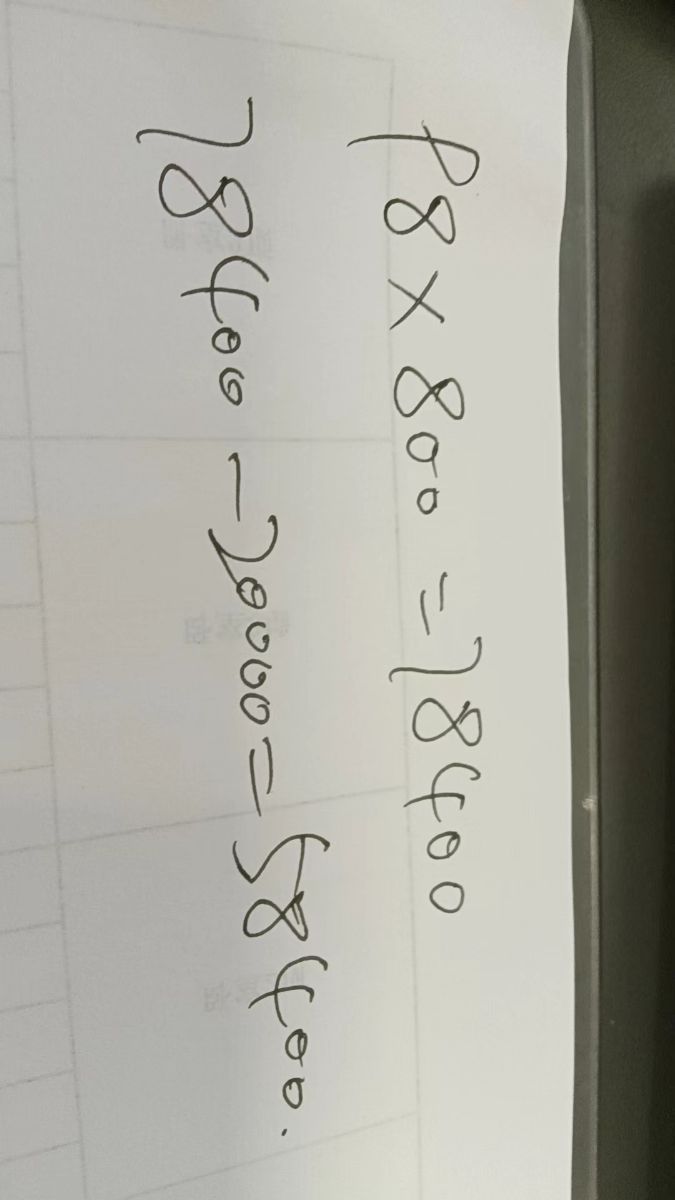 98 × 800 = 78400
78400 - 20000 = 58400.